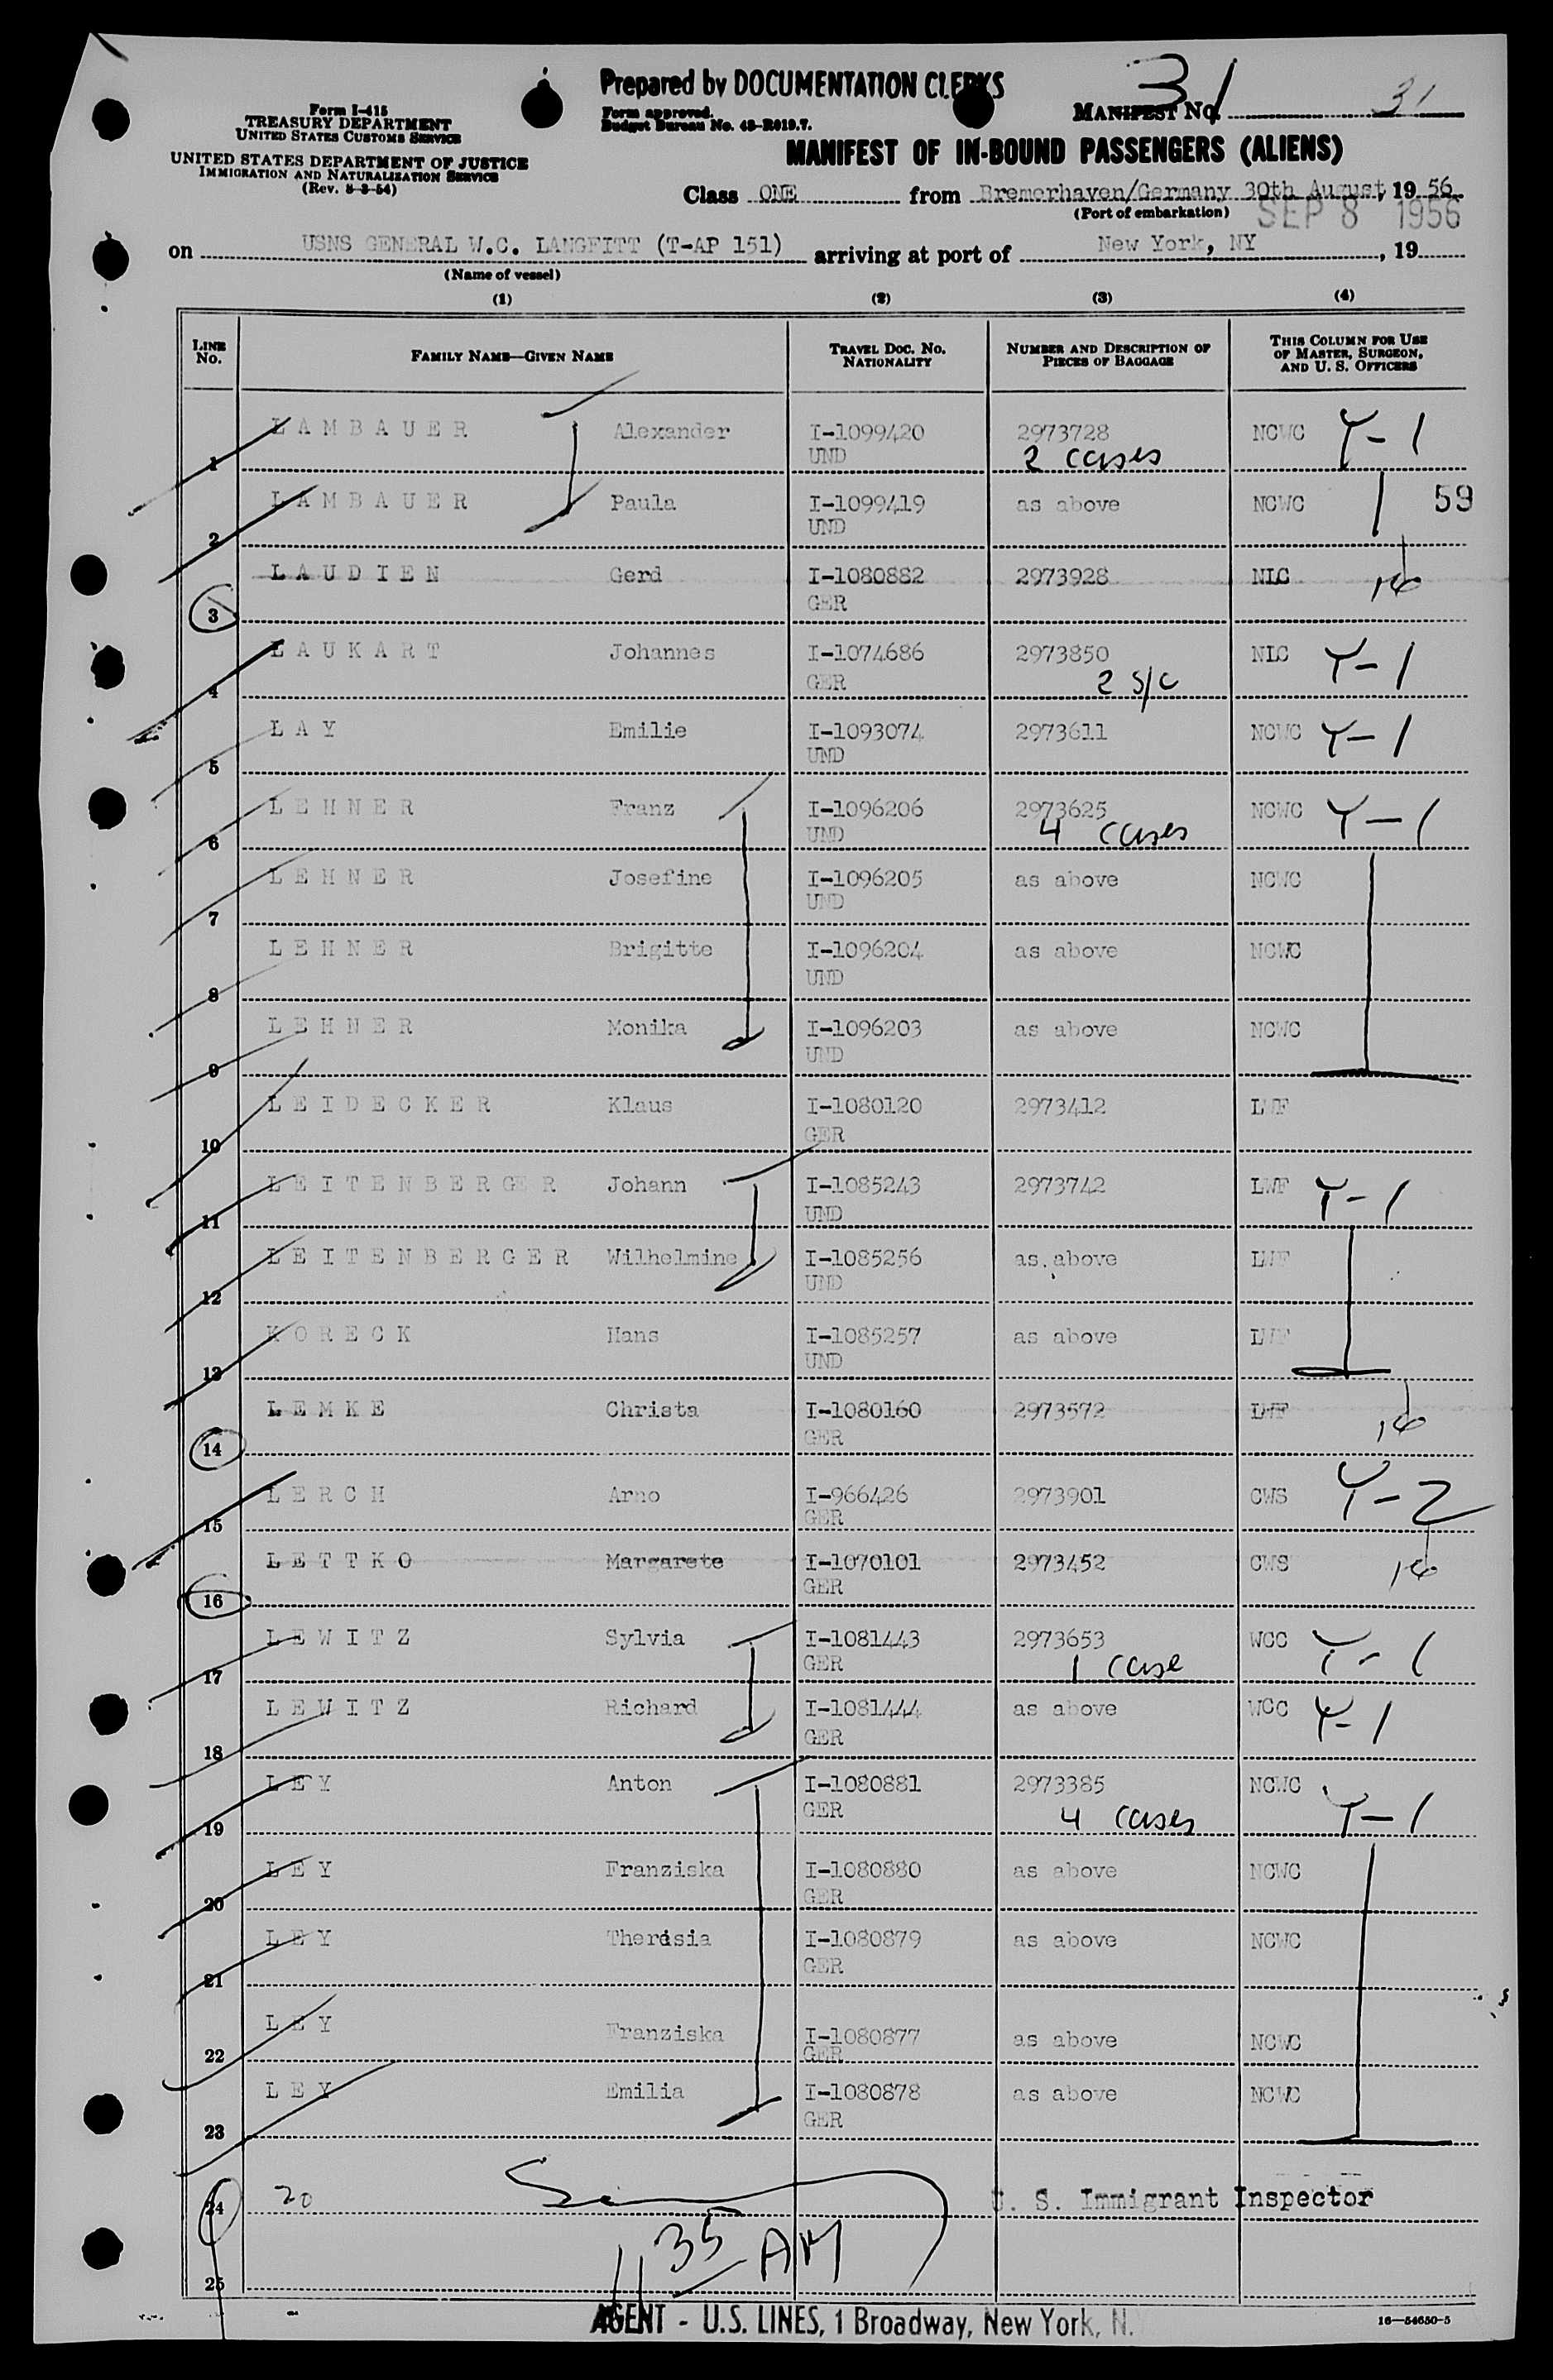 Prepared by DOCUMENTATION CLERKS
Form I-415
TREASURY DEPARTMENT
UNITED STATES CUSTOMS SERVICE
UNITED STATES DEPARTMENT OF JUSTICE
IMMIGRATION AND NATURALIZATION SERVICE
(Rev. 8-3-54)
Form approved.
Budget Bureau No. 43-R019.7.
31
MANIFEST No. 31
MANIFEST OF IN-BOUND PASSENGERS (ALIENS)
Class ONE from Bremerhaven/Germany 30th August, 19 56
(Port of embarkation) SEP 8 1956
on USNS GENERAL W.C. LANGFITT (T-AP 151) arriving at port of New York, NY, 19
(Name of vessel)
(1) (2) (3) (4)
LINE No. FAMILY NAME—GIVEN NAME TRAVEL DOC. No. NATIONALITY NUMBER AND DESCRIPTION OF PIECES OF BAGGAGE THIS COLUMN FOR USE OF MASTER, SURGEON, AND U. S. OFFICERS
1 LAMBAUER Alexander I-1099420 UND 2973728 2 cases NCWC Y-1
2 LAMBAUER Paula I-1099419 UND as above NCWC 59
3 LAUDIEN Gerd I-1080882 GER 2973928 NLC
4 LAUKART Johannes I-1074686 GER 2973850 2 S/C NLC Y-1
5 LAY Emilie I-1093074 UND 2973611 NCWC Y-1
6 LEHNER Franz I-1096206 UND 2973625 4 cases NCWC Y-1
7 LEHNER Josefine I-1096205 UND as above NCWC
8 LEHNER Brigitte I-1096204 UND as above NCWC
9 LEHNER Monika I-1096203 UND as above NCWC
10 LEIDECKER Klaus I-1080120 GER 2973412 LWF
11 LEITENBERGER Johann I-1085243 UND 2973742 LWF Y-1
12 LEITENBERGER Wilhelmine I-1085256 UND as above LWF
13 KORECK Hans I-1085257 UND as above LWF
14 LEMKE Christa I-1080160 GER 2973572 LWF
15 LERCH Arno I-966426 GER 2973901 CWS Y-2
16 LETTKO Margarete I-1070101 GER 2973452 CWS
17 LEWITZ Sylvia I-1081443 GER 2973653 1 case WCC Y-1
18 LEWITZ Richard I-1081444 GER as above WCC Y-1
19 LEY Anton I-1080881 GER 2973385 4 cases NCWC Y-1
20 LEY Franziska I-1080880 GER as above NCWC
21 LEY Theresia I-1080879 GER as above NCWC
22 LEY Franziska I-1080877 GER as above NCWC
23 LEY Emilia I-1080878 GER as above NCWC
24 20 U. S. Immigrant Inspector
25 11 35 AM
AGENT - U.S. LINES, 1 Broadway, New York, N.
16—54650-5